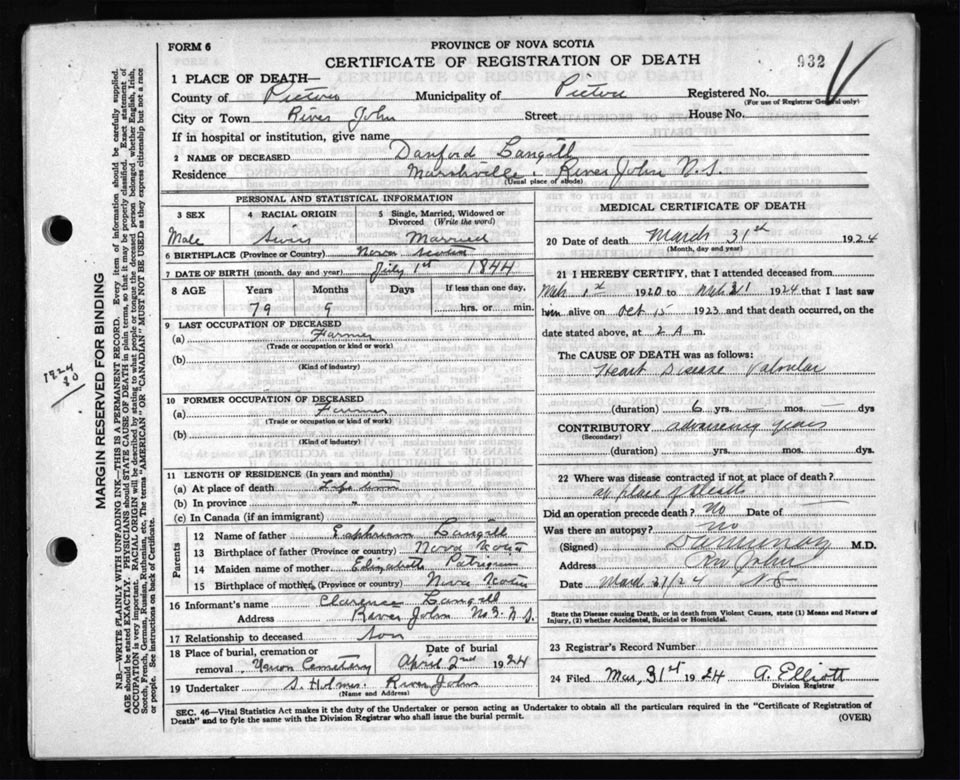 FORM 6
PROVINCE OF NOVA SCOTIA
CERTIFICATE OF REGISTRATION OF DEATH
932
1 PLACE OF DEATH—
County of Pictou Municipality of Pictou Registered No.
(For use of Registrar General only)
City or Town River John Street House No.
If in hospital or institution, give name
2 NAME OF DECEASED Danford Langill
Residence Marshville River John N.S.
(Usual place of abode)
PERSONAL AND STATISTICAL INFORMATION
3 SEX 4 RACIAL ORIGIN 5 Single, Married, Widowed or Divorced (Write the word)
Male Swiss Married
6 BIRTHPLACE (Province or Country) Nova Scotia
7 DATE OF BIRTH (month, day and year) July 1st 1844
8 AGE Years Months Days If less than one day,
79 9 hrs. or min.
9 LAST OCCUPATION OF DECEASED
(a) Farmer
(Trade or occupation or kind or work)
(b)
(Kind of industry)
10 FORMER OCCUPATION OF DECEASED
(a) Farmer
(Trade or occupation or kind of work)
(b)
(Kind of industry)
11 LENGTH OF RESIDENCE (In years and months)
(a) At place of death Life time
(b) In province "
(c) In Canada (if an immigrant)
Parents
12 Name of father Ephriam Langill
13 Birthplace of father (Province or country) Nova Scotia
14 Maiden name of mother Elizabeth Patriquin
15 Birthplace of mother (Province or country) Nova Scotia
16 Informant's name Clarence Langill
Address River John No 3. N.S.
17 Relationship to deceased Son
18 Place of burial, cremation or removal Union Cemetery Date of burial April 2nd 1924
19 Undertaker S. Holmes River John
(Name and Address)
MEDICAL CERTIFICATE OF DEATH
20 Date of death March 31st 1924
(Month, day and year)
21 I HEREBY CERTIFY, that I attended deceased from
Mch 1st 1920 to Mch 31 1924 that I last saw
him alive on Oct 15 1923 and that death occurred, on the
date stated above, at 2 A m.
The CAUSE OF DEATH was as follows:
Heart Disease Valvular
(duration) 6 yrs. — mos. — dys
CONTRIBUTORY advancing years
(Secondary)
(duration) yrs. mos. dys.
22 Where was disease contracted if not at place of death?
at place of death
Did an operation precede death? No Date of
Was there an autopsy? no
(Signed) M.D.
Address River John
Date March 31/24 NS
State the Disease causing Death, or in death from Violent Causes, state (1) Means and Nature of Injury, (2) whether Accidental, Suicidal or Homicidal.
23 Registrar's Record Number
24 Filed Mar, 31st 1924 A. Elliott
Division Registrar
SEC. 46—Vital Statistics Act makes it the duty of the Undertaker or person acting as Undertaker to obtain all the particulars required in the "Certificate of Registration of
Death" and to fyle the same with the Division Registrar who shall issue the burial permit. (OVER)
MARGIN RESERVED FOR BINDING
N.B.—WRITE PLAINLY WITH UNFADING INK—THIS IS A PERMANENT RECORD. Every item of information should be carefully supplied.
AGE should be stated EXACTLY. PHYSICIANS should STATE CAUSE OF DEATH in plain terms, so that it may be properly classified. Exact statement of
OCCUPATION is very important. RACIAL ORIGIN will be described by stating to what people or tongue the deceased person belonged whether English, Irish,
Scotch, French, German, Russian, Ruthenian, etc. The terms "AMERICAN" or "CANADIAN" MUST NOT BE USED as they express citizenship but not a race
or people. See instructions on back of Certificate.
1924
80